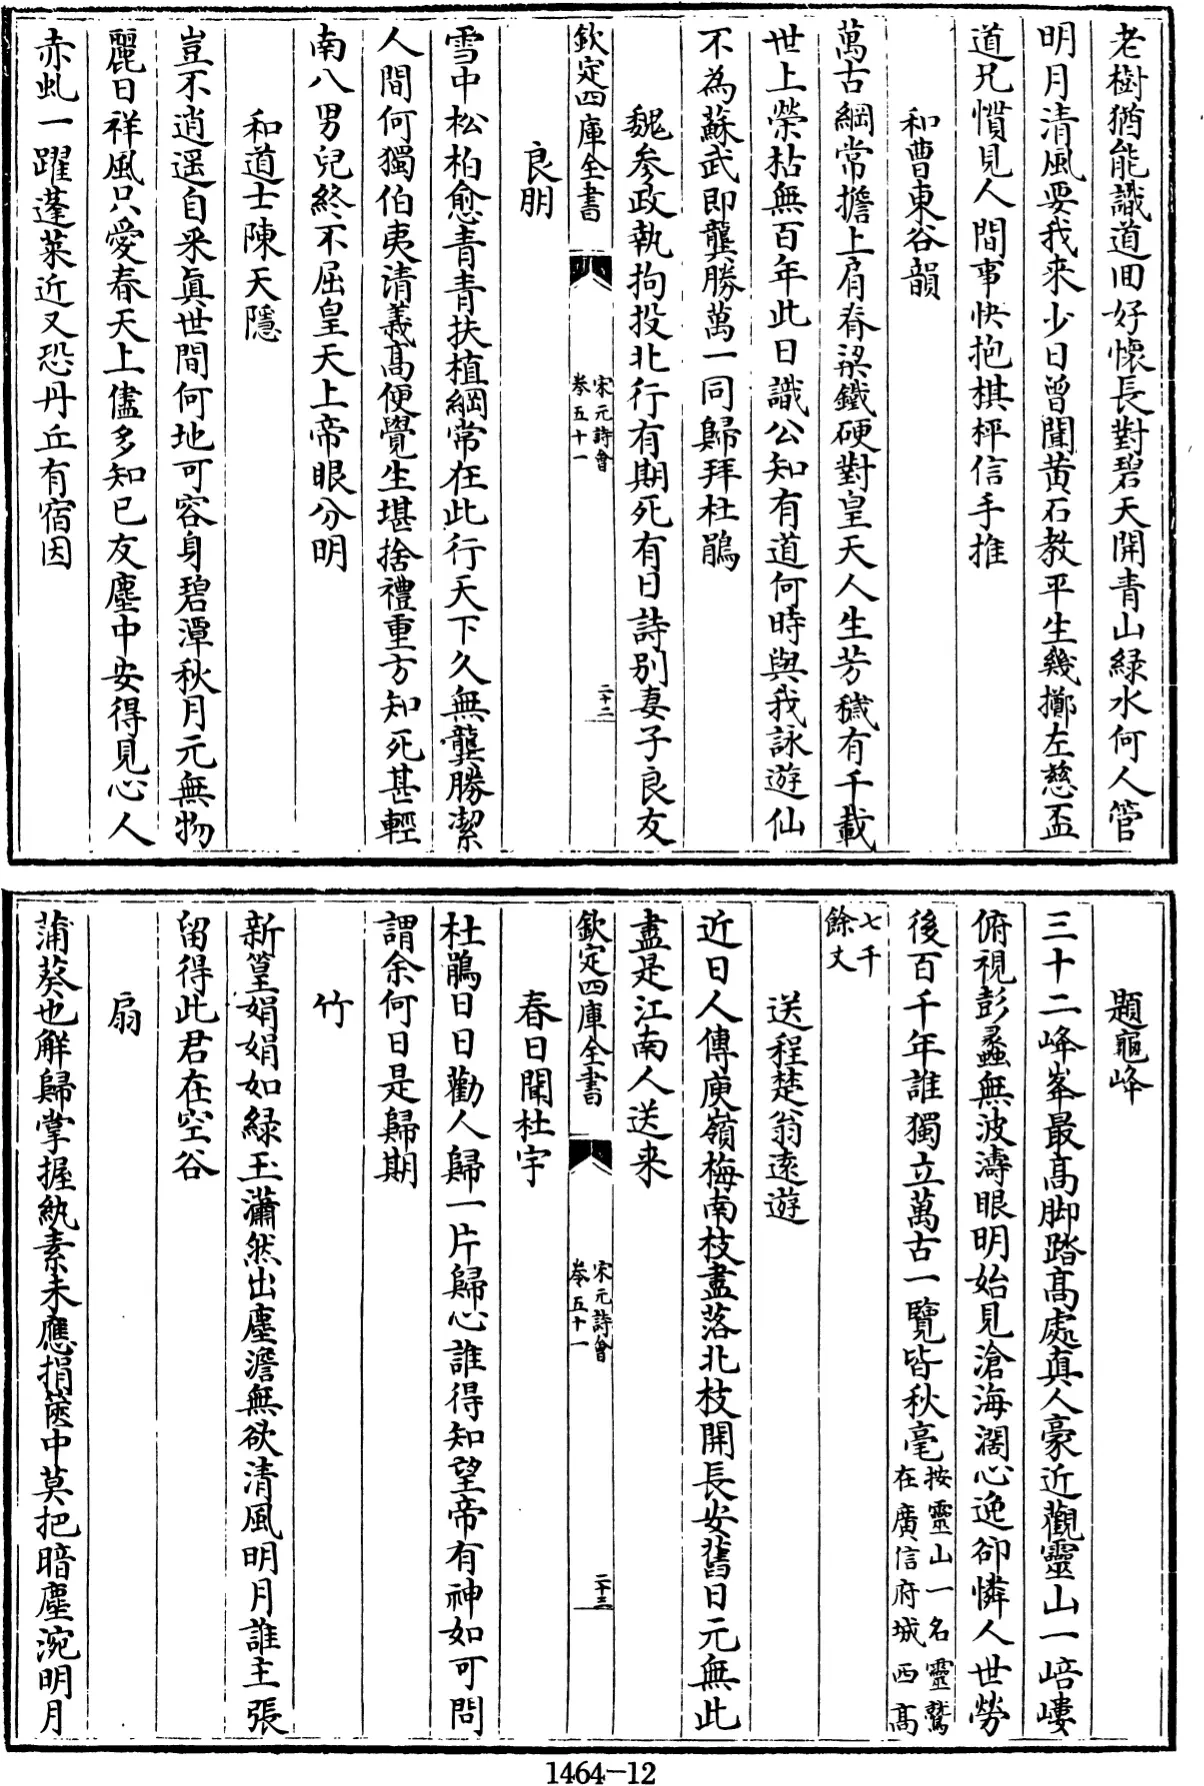 老樹猶能識道回好懷長對碧天開青山綠水何人管
明月清風要我来少日曾聞黄石教平生幾擲左慈盃
道兄慣見人間事快抱棋枰信手推
和曹東谷韻
萬古綱常擔上肩脊梁鐵硬對皇天人生芳穢有千載
世上榮枯無百年此日識公知有道何時與我詠遊仙
不為蘇武即龔勝萬一同歸拜杜鵑
魏参政執拘投北行有期死有日詩别妻子良友
欽定四庫全書
宋元詩會
卷五十一
二十二
良朋
雪中松柏愈青青扶植綱常在此行天下久無龔勝潔
人間何獨伯夷清義髙便覺生堪捨禮重方知死甚輕
南八男兒終不屈皇天上帝眼分明
和道士陳天隱
豈不逍遥自采真世間何地可容身碧潭秋月元無物
麗日祥風只愛春天上儘多知已友塵中安得見心人
赤虬一躍蓬萊近又恐丹丘有宿因
題龜峰
三十二峰峯最髙脚踏髙處真人豪近觀靈山一㟝嶁
俯視彭蠡無波濤眼明始見滄海濶心逸卻憐人世勞
後百千年誰獨立萬古一覽皆秋毫按靈山一名靈鷲在廣信府城西髙
七千餘丈
送程楚翁逺遊
近日人傳庾嶺梅南枝盡落北枝開長安舊日元無此
盡是江南人送来
欽定四庫全書
宋元詩會
卷五十一
二十三
春日聞杜宇
杜鵑日日勸人歸一片歸心誰得知望帝有神如可問
謂余何日是歸期
竹
新篁娟娟如緑玉瀟然出塵澹無欲清風明月誰主張
留得此君在空谷
扇
蒲葵也解歸掌握紈素未應捐篋中莫把暗塵涴明月
1464-12